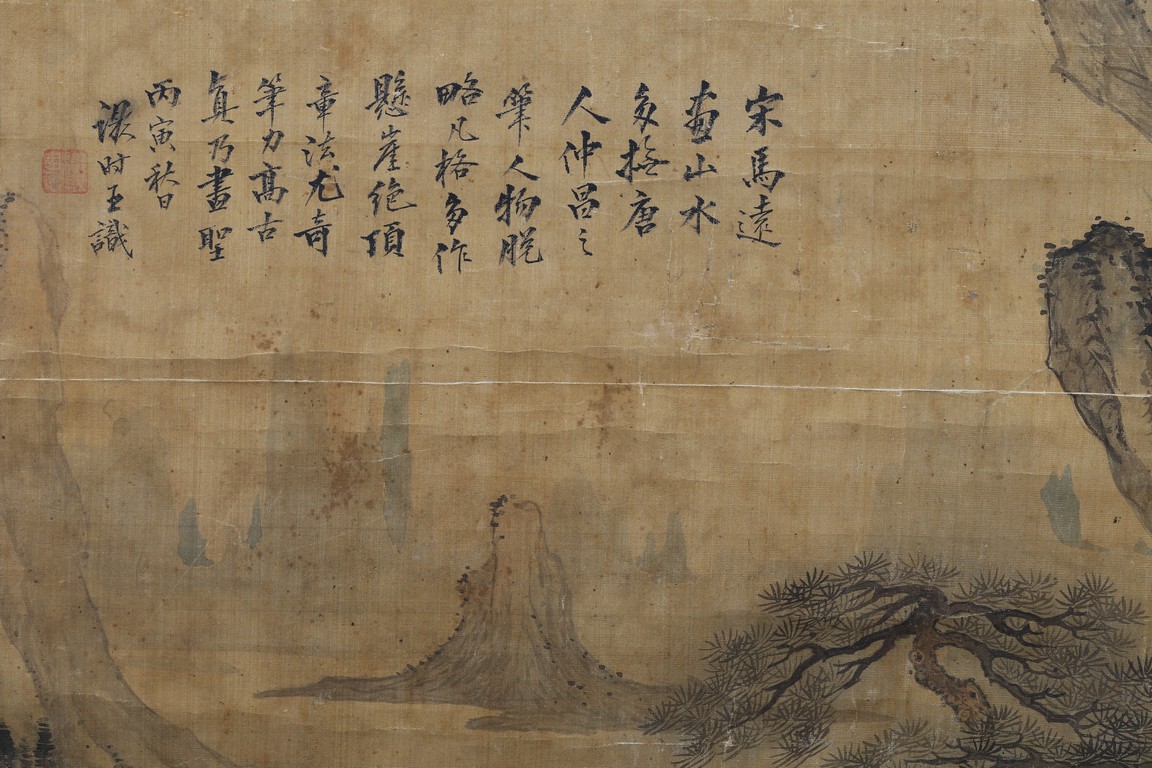 宋馬遠
畫山水
多撫唐
人仲昌之
筆人物脱
略凡格多作
懸崖絶頂
章法尤奇
筆力高古
真乃畫聖
丙寅秋日
时王識